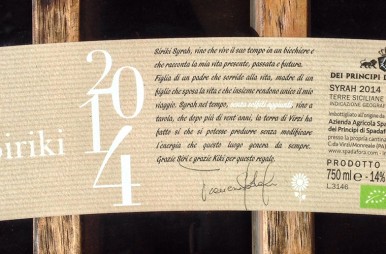 Siriki
2014
Siriki Syrah, vino che vive il suo tempo in un bicchiere e
che racconta la mia vita presente, passata e futura.
Figlia di un padre che sorride alla vita, madre di un
figlio che sposa la vita e che insieme rendono unico il mio
viaggio. Syrah nel tempo, senza solfiti aggiunti, vino a
tavola, che dopo più di vent'anni, la terra di Virzì ha
fatto sì che si potesse produrre senza modificare
l'energia che questo luogo genera da sempre.
Grazie Siri e grazie Kiki per questo regalo.
DEI PRINCIPI
SYRAH 2014
TERRE SICILIANE
INDICAZIONE GEOGRAF
Imbottigliato all'origine da
Azienda Agricola Sp
dei Principi di Spadaf
presso la propria cantina
C.da Virzì/Monreale (PA)
www.spadafora.com
PRODOTTO
750 ml e -14%
L.3146